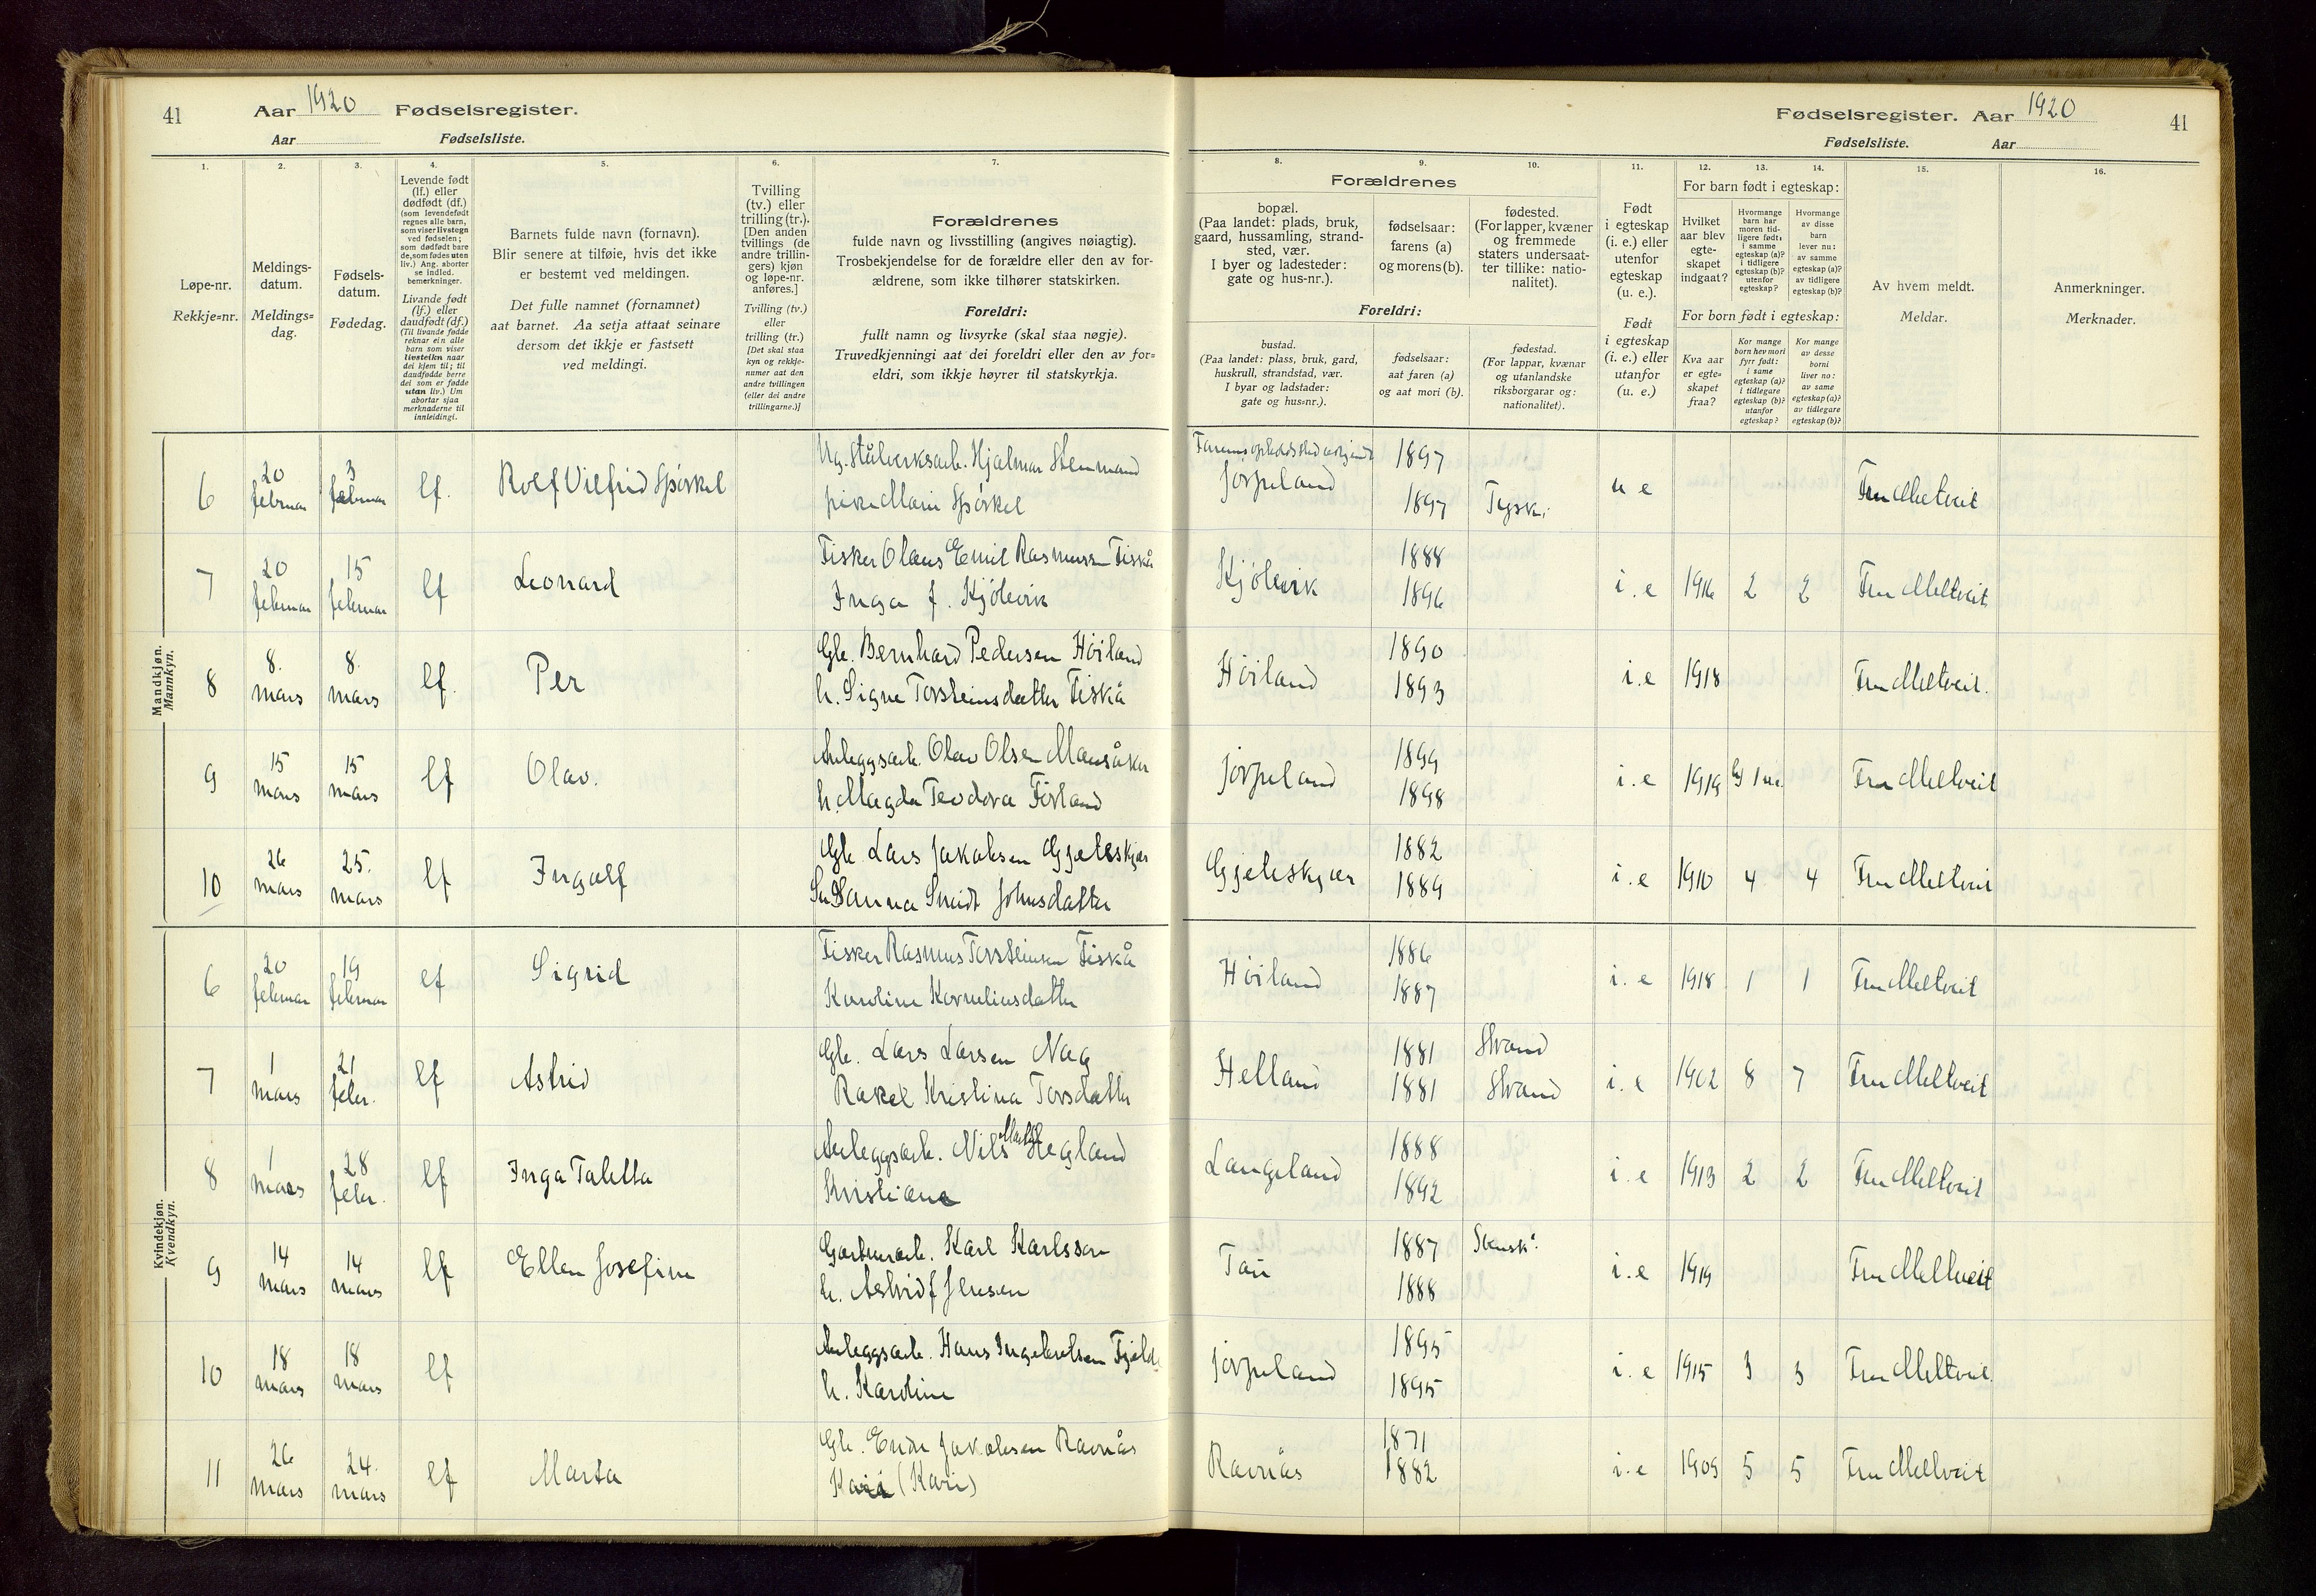 41
Aar 1920 Fødselsregister.
Aar Fødselsliste.
Fødselsregister. Aar 1920
Fødselsliste. Aar
41
1.
Løpe-nr.
Rekkje=nr.
2.
Meldings-
datum.
Meldings=
dag.
3.
Fødsels-
datum.
Fødedag.
4.
Levende født
(lf.) eller
dødfødt (df.)
(som levendefødt
regnes alle barn,
som viser livstegn
ved fødselen;
som dødfødt bare
de, som fødes uten
liv.) Ang. aborter
se indled.
bemerkninger.
Livande født
(lf.) eller
daudfødt (df.)
(Til livande fødde
reknar ein alle
barn som viser
livsteikn naar
dei kjem til; til
daudfødde berre
dei som er fødde
utan liv.) Um
abortar sjaa
merknaderne til
innleidingi.
5.
Barnets fulde navn (fornavn).
Blir senere at tilføie, hvis det ikke
er bestemt ved meldingen.
Det fulle namnet (fornamnet)
aat barnet. Aa setja attaat seinare
dersom det ikkje er fastsett
ved meldingi.
6.
Tvilling
(tv.) eller
trilling (tr.).
[Den anden
tvillings (de
andre trillin-
gers) kjøn
og løpe-nr.
anføres.]
Tvilling (tv.)
eller
trilling (tr.)
[Det skal staa
kyn og rekkje-
numer aat den
andre tvillingen
(eller dei andre
trillingarne.)]
7.
Forældrenes
fulde navn og livsstilling (angives nøiagtig).
Trosbekjendelse for de forældre eller den av for-
ældrene, som ikke tilhører statskirken.
Foreldri:
fullt namn og livsyrke (skal staa nøgje).
Truvedkjenningi aat dei foreldri eller den av for=
eldri, som ikkje høyrer til statskyrkja.
Forældrenes
8.
bopæl.
(Paa landet: plads, bruk,
gaard, hussamling, strand-
sted, vær.
I byer og ladesteder:
gate og hus-nr.).
9.
fødselsaar:
farens (a)
og morens (b).
10.
fødested.
(For lapper, kvæner
og fremmede
staters undersaat-
ter tillike: natio-
nalitet).
Foreldri:
bustad.
(Paa landet: plass, bruk, gard,
huskrull, strandstad, vær.
I byar og ladstader:
gate og hus=nr.).
fødselsaar:
aat faren (a)
og aat mori (b).
fødestad.
(For lappar, kvænar
og utanlandske
riksborgarar og:
nationalitet).
11.
Født
i egteskap
(i. e.) eller
utenfor
egteskap
(u. e.).
Født
i egteskap
(i. e.) eller
utanfor
(u. e.)
12.
13.
14.
For barn født i egteskap:
Hvilket
aar blev
egte-
skapet
indgaat?
Hvormange
barn har
moren tid-
ligere født:
i samme
egteskap (a)?
i tidligere
egteskap (b)?
utenfor
egteskap?
Hvormange
av disse
barn
lever nu:
av samme
egteskap (a)?
av tidligere
egteskap (b)?
For born født i egteskap:
Kva aar
er egte=
skapet
fraa?
Kor mange
born hev mori
fyrr født:
i same
egteskap (a)?
i tidlegare
egteskap (b)?
utanfor
egteskap?
Kor mange
av desse
borni
liver no:
av same
egteskap (a)?
av tidlegare
egteskap (b)?
15.
Av hvem meldt.
Meldar.
16.
Anmerkninger.
Merknader.
Mandkjøn.
Mannkyn.
6 20 februar 3 februar lf. Rolf Vilfrid Spörkel
Ug. Stålverksarb. Hjalmar Stenmand
pike Marie Spörkel
Jørpeland 1897 1897 Tysk. u e Fru Meltveit
7 20 februar 15 februar lf Leonard
Fisker Olaus Emil Rasmussen Fiskå
Inga f. Kjölevik
Kjölevik 1888 1896 i.e 1916 2 2 Fru Meltveit
8 8. mars 8. mars lf. Per
Gbr. Bernhard Pedersen Höiland
h. Signe Torsteinsdatter Fiskå
Höiland 1890 1893 i.e 1918 Fru Meltveit.
9 15 mars 15 mars lf Olav.
Anleggsarb. Olav Olsen
h. Magda Teodora Förland
Jørpeland 1899 1898 i.e 1919 1 u.e. Fru Meltveit
10 26 mars 25. mars lf Ingolf
Gbr. Lars Jakobsen Gjeleskjær
Susanna Smidt Johnsdatter
Gjeleskjær 1882 1889 i.e 1910 4 4 Fru Meltveit
Kvindekjøn.
Kvendkyn.
6 20 februar 19 februar lf Sigrid
Fisker Rasmus Torsteinsen Fiskå
Karoline Korneliusdatter
Höiland 1886 1887 i.e 1918 1 1 Fru Meltveit
7 1 mars 21 febr. lf Astrid
Gbr. Lars Larsen Nag
Rakel Kristina Torsdatter
Helland 1881 1881 Strand Strand i.e 1902 8 7 Fru Meltveit
8 1 mars 28 febr. lf Inga Taletta
Anleggsarb. Nils Hegland
Kristiane
Langeland 1888 1892 i.e 1913 2 2 Fru Meltveit
9 14 mars 14 mars lf Ellen Josefine
Gartnerarb. Karl Karlsson
h. Astrid f Jensen
Tau 1887 1888 Svensk. i.e 1919 Fru Meltveit
10 18 mars 18 mars lf
Anleggsarb. Hans Ingebretsen Fjelde
h. Karoline
Jørpeland 1895 1895 i.e 1915 3 3 Fru Meltveit
11 26 mars 24. mars lf Marta
Gbr. Endre Jakobsen Ravnås
Kari (Kari)
Ravnås 1871 1882 i.e 1909 5 5 Fru Meltveit